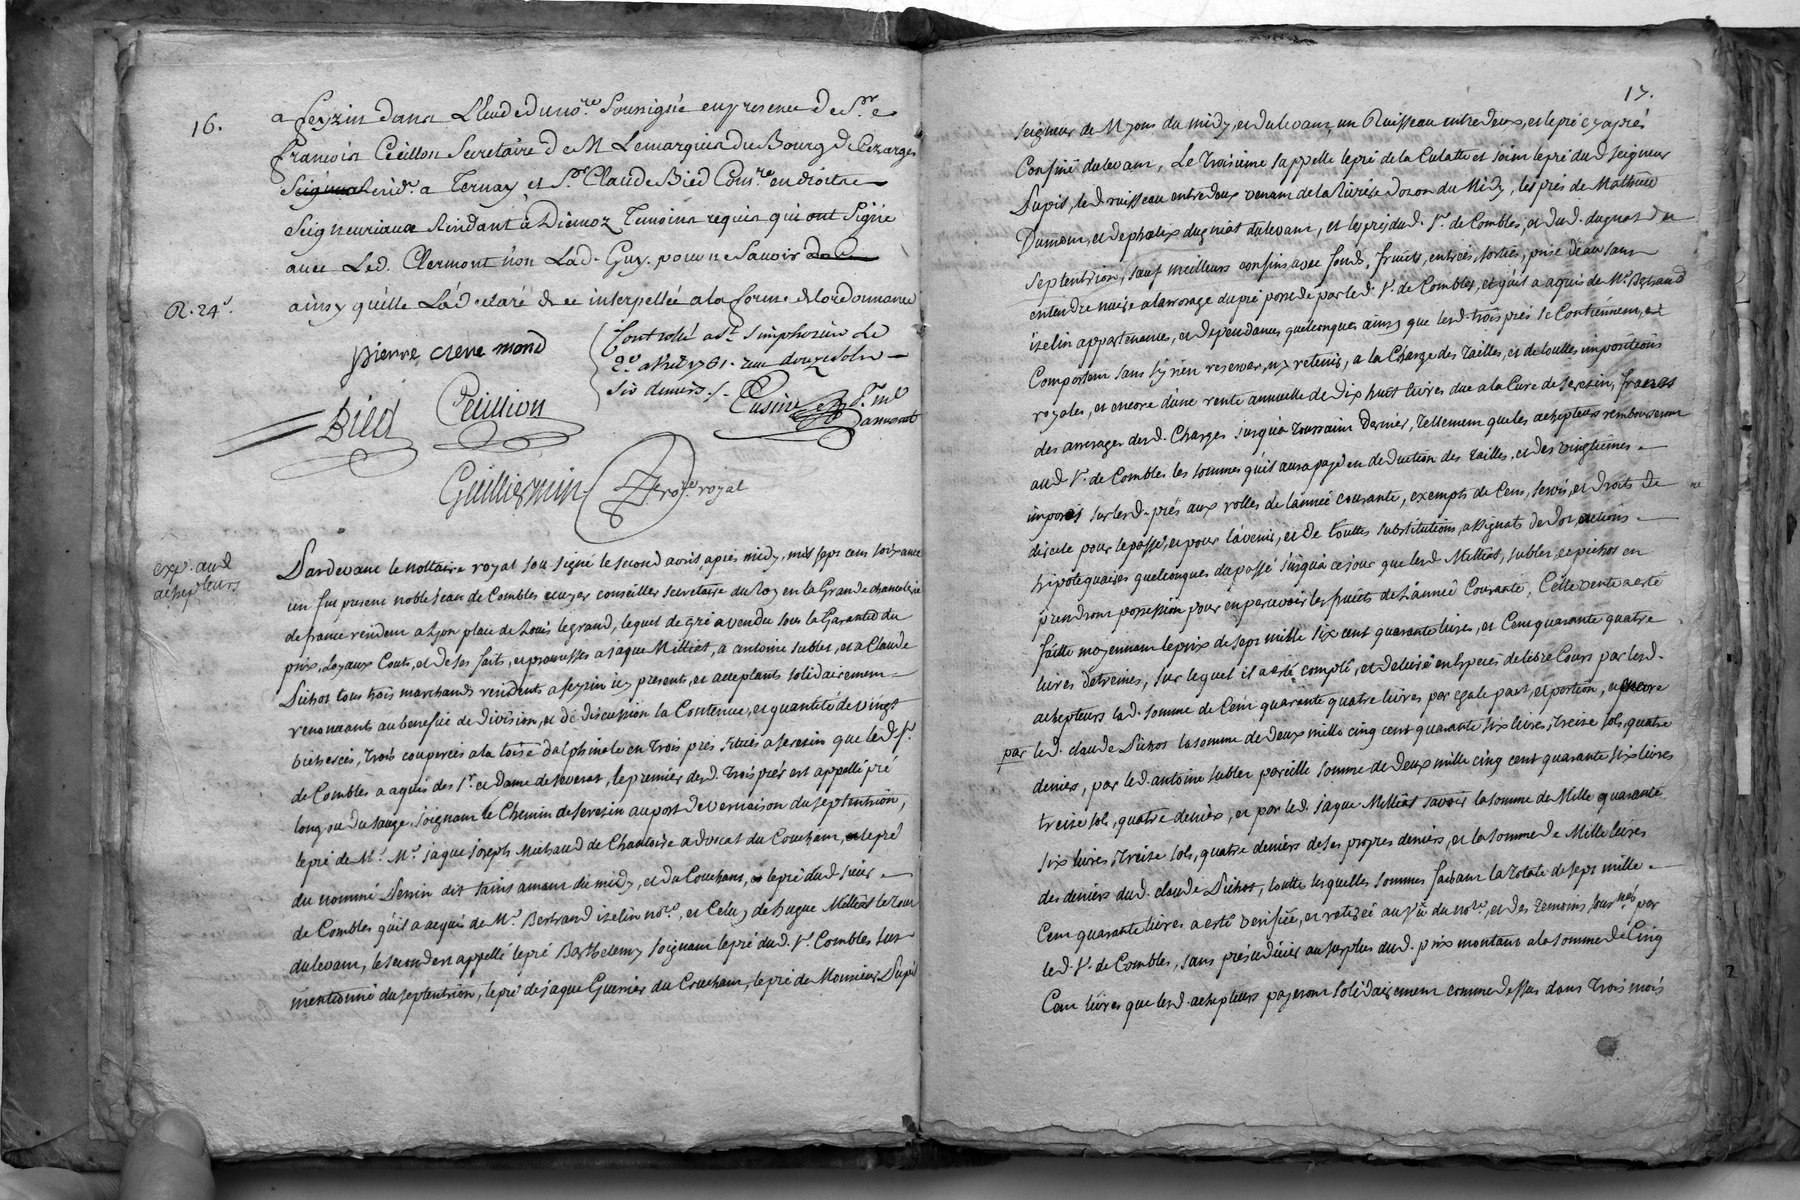 16.
a feyzin dans L'Etude du no.re Soussigné en presence de S.r
françois Cecillon Secretaire de M Lemarquis du Bourg de Cezarges
Resid.t a Ternay et S.r Claude Bied Com.re en droits
Seigneuriaux Residant à Diemoz Temoins requis qui ont Signé
avec Led. Clermont non Lad. Guy. pour ne Savoir
ainsy qu'elle L'a declaré de ce interpellée a la forme de l'ordonnance
R. 24s.
pierre clere mond
Controlé a St. Simphorien le
2e. avril 1761. reçu douze sols
six deniers ./.
Bied Cecillion
Guilliermin no.re royal
exp. aud
achepteurs
Pardevant le nottaire royal sousigné le second avril, apres midy, mil sept cens soixante
un fut present noble Jean de Combles ecuyer conseiller secretaire du Roy en la Grande chancelerie
de france resident a Lyon place de Louis legrand, lequel de gré a vendu sous la Garantie du
prix, Loyaux Couts, et de ses faits, et promesses a jaque Milliat, a antoine sublet, et a Claude
Pichot tous trois marchands residents a feyzin icy presents, et acceptants solidairement
renonçant au benefice de division, et de discussion la Contenue, et quantité de vingt
bicherées, trois couperées a la toise dalphinale en trois prés situés a seresin que led. Sr.
de Combles a aquis des Sr. et Dame de severat, le premier desd. trois prés est appellé pré
long ou du sauge, joignant le Chemin de seresin au port de vernaison du septentrion,
le pré de Mr. Mr. jaque joseph Michaud de Chantoire advocat du Couchant, le pré
du nommé Perrin dit saint amant du midy, et du Couchant, le pré dud. sieur
de Combles qu'il a acquis de Mr. Bertrand izelin no.re, et Celuy de hugue Milliat le tour
du levant, le second est appellé le pré Barthelemy joignant le pré dud. Sr. Combles sus
mentionné du septentrion, le pré de jaque Guerrier du Couchant, le pré de Monsieur Dupis
17.
seigneur de Myons du midy, et du levant, un Ruisseau entre deux, et le pré cy apres
Confiné du levant, Le troisieme s'appelle le pré de la Culatte et joint le pré dud seigneur
Dupis, led. ruisseau entre deux venant de la riviere dozon du Midy, les prés de Mathieu
Dumon, et de phelix dugniat du levant, et les prés dud. Sr. de Combles, et dud. dugnat du
septentrion, sauf meilleurs confins avec fonds, fruits, entrées, sorties, prise d'eau sans
entendre nuire a l'arrosage du pré possedé par led. Sr. de Combles, et qu'il a aquis de Mr. Bertrand
izelin appartenances, et dependances quelconques ainsy que lesd. trois prés se Contiennent, et
Comportent sans s'y rien reserver, ny retenir, a la Charge des tailles, et de touttes impositions
royales, et encore d'une rente annuelle de Dix huit livres due a la Cure de seresin, francs
des arrerages desd. Charges jusqu'a toussaint dernier, tellement que les achepteurs rembourseront
aud Sr. de Combles les sommes qu'il aura payé en deduction des tailles, et des vingtiemes
imposés sur lesd. prés aux rolles de l'année courante, exempts de Cens, servis, et droits de
directe pour le passé, et pour l'avenir, et de touttes substitutions, assignats de dot actions
hipotequaires quelconques du passé jusqu'a ce jour que lesd. Milliat, sublet, et pichot en
prendront possession pour en percevoir les fruits de l'année Courante, Cette vente a eté
faitte moyennant le prix de sept mille six cent quarante livres, et Cent quarante quatre
livres d'etreines, sur lequel il a eté compté, et delivré en especes de libre Cours par lesd.
achepteurs lad. somme de Cent quarante quatre livres par egale part, et portion, et encore
par led. claude Pichot la somme de deux mille cinq cent quarante six livres, treize sols, quatre
deniers, par led. antoine sublet pareille somme de deux mille cinq cent quarante six livres
treize sols, quatre deniers, et par led. jaque Milliat savoir la somme de Mille quarante
six livres, treize sols, quatre deniers de ses propres deniers, et la somme de Mille livres
des deniers dud. claude Pichot, touttes lesquelles sommes faisant la totale de sept mille
Cent quarante livres a eté verifiée, et retirée au vû du no.re, et des temoins sous.nés par
led. Sr. de Combles, sans préjudicier au surplus dud. prix montant a la somme de Cinq
Cent livres que lesd. achepteurs payeront solidairement comme dessus dans trois mois